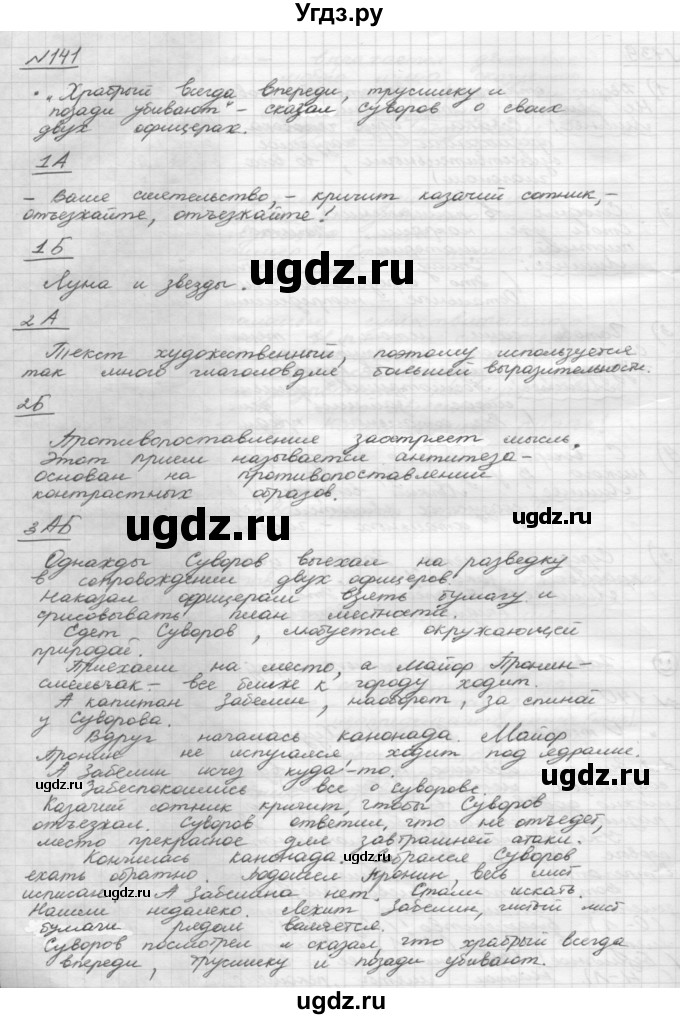 Угдз.ру
№141
„Храбрый всегда впереди, трусишку и
позади убивают" - сказал Суворов о своих
двух офицерах.
1А
- Ваше сиятельство, - кричит казачий сотник, -
отъезжайте, отъезжайте!
1Б
Луна и звезды.
ugdz.ru
2А
Текст художественный, поэтому используется
так много глаголов для большей выразительности.
2Б
Противопоставление заостряет мысль.
Этот прием называется антитеза -
основан на противопоставлении
контрастных образов.
ugdz.ru
ugdz.ru
3АБ
Однажды Суворов выехал на разведку
в сопровождении двух офицеров.
Наказал офицерам взять бумагу и
срисовывать план местности.
Едет Суворов, любуется окружающей
природой.
Приехали на место, а Майор Пронин -
смельчак - все ближе к городу ходит.
А капитан Забелин, наоборот, за спиной
у Суворова.
Вдруг началась канонада. Майор
Пронин не испугался, ходит под ядрами.
А Забелин исчез куда-то.
ugdz.ru
Забеспокоились все о Суворове.
Казачий сотник кричит, чтобы Суворов
отъезжал. Суворов ответил, что не отъедет,
место прекрасное для завтрашней атаки.
Кончилась канонада, собрался Суворов
ugdz.ru
ехать обратно. Подошел Пронин, весь лист
исписан. А Забелина нет. Стали искать.
ugdz.ru
Нашли недалеко. Лежит Забелин, чистый лист
бумаги рядом валяется.
Суворов посмотрел и сказал, что храбрый всегда
впереди, трусишку и позади убивают.
ugdz.ru
ugdz.ru